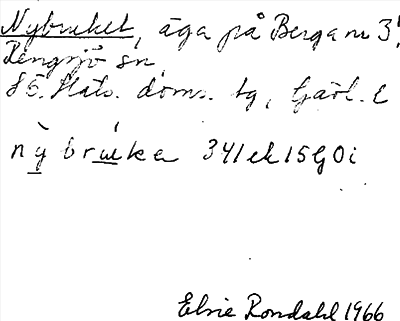 Nybruket, äga på Berga nr 3!
Rengsjö sn,
S5. Häls. doms. tg, Gävl. l
nybruka 341ek15G0i
Elsie Rondahl 1966